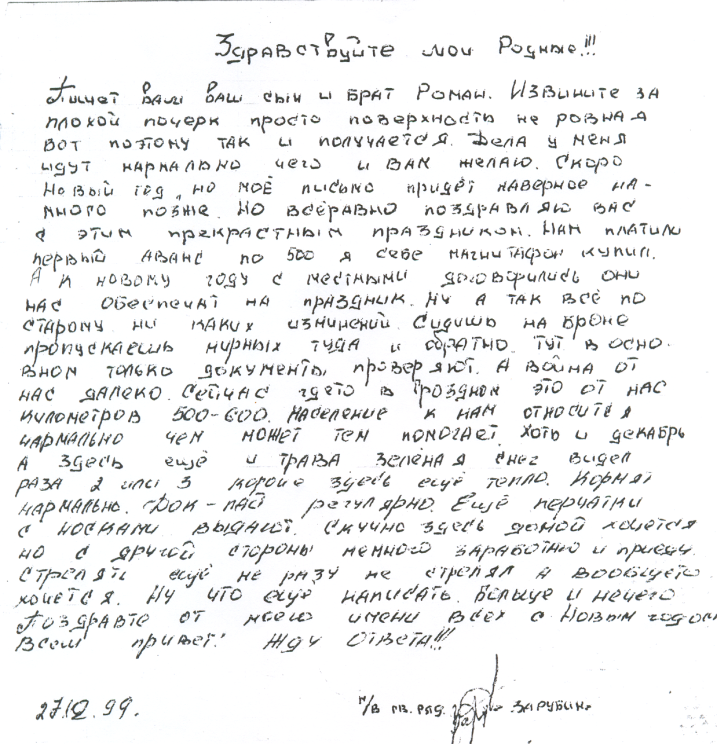 Здравствуйте мои Родные!!!
Пишет Вам Ваш сын и брат Роман. Извините за
плохой почерк просто поверхность не ровная
вот поэтому так и получается. Дела у меня
идут нармально чего и вам желаю. Скоро
Новый год, но моё письмо придёт наверное на-
много позже. Но всёравно поздравляю вас
с этим прекрастным праздником. Нам платили
первый аванс по 500 я себе магнитафон купил.
А к новому году с местными договорились они
нас обеспечат на праздник. Ну а так всё по
старому ни каких изминений. Сидишь на броне
пропускаешь мирных туда и обратно. Тут в осно-
вном только документы проверяют. А война от
нас далеко. Сейчас гдето в Грозном это от нас
километров 500-600. Население к нам относится
нармально чем может тем помогает. Хоть и декабрь
а здесь ещё и трава зелёная снег видел
раза 2 или 3 короче здесь ещё тепло. Кормят
нармально. Док-паё регулярно. Ещё перчатки
с носками выдают. Скучно здесь домой хочется
но с другой стороны немного заработаю и приеду.
Стрелять ещё не разу не стрелял а вообщето
хочется. Ну что ещё написать. Больше и нечего
Поздравте от моего имени всех с Новым годом
Всем привет! Жду Ответа!!!
27.12.99. к/в гв. ряд. Зарубин